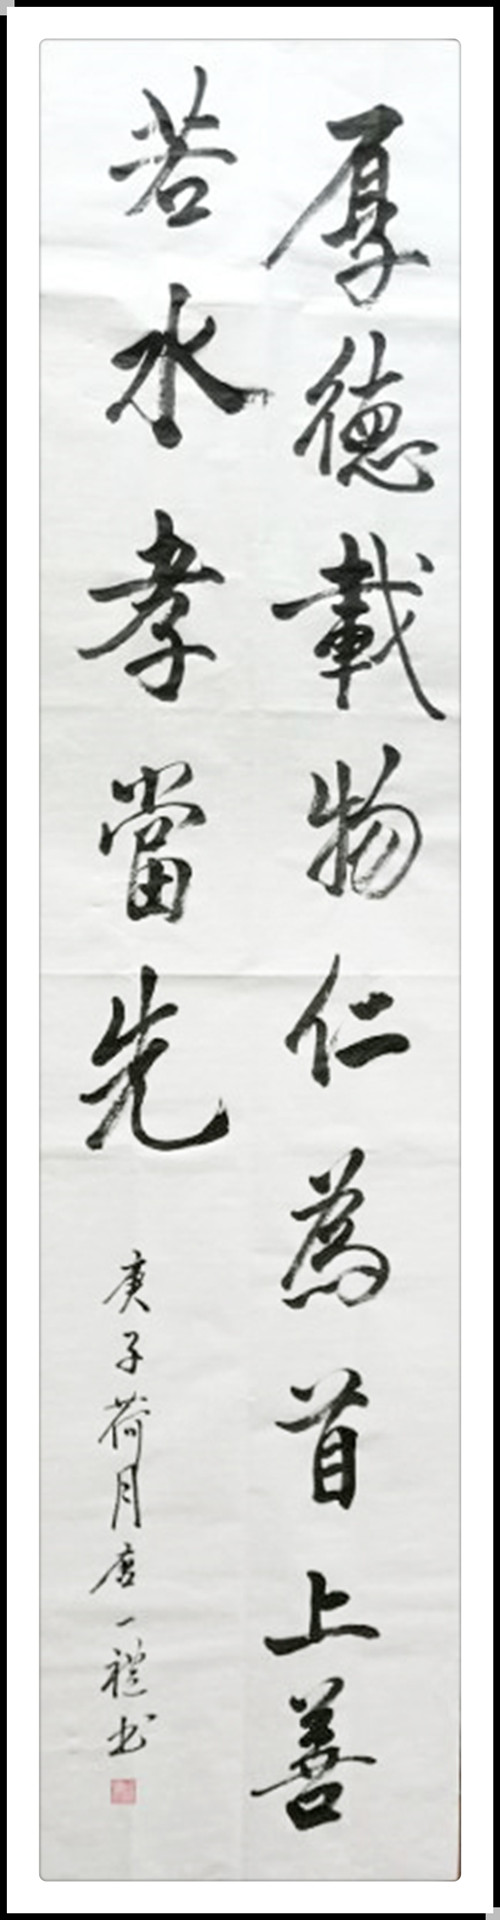 厚德載物仁為首上善
若水孝當先
庚子荷月唐一禮书